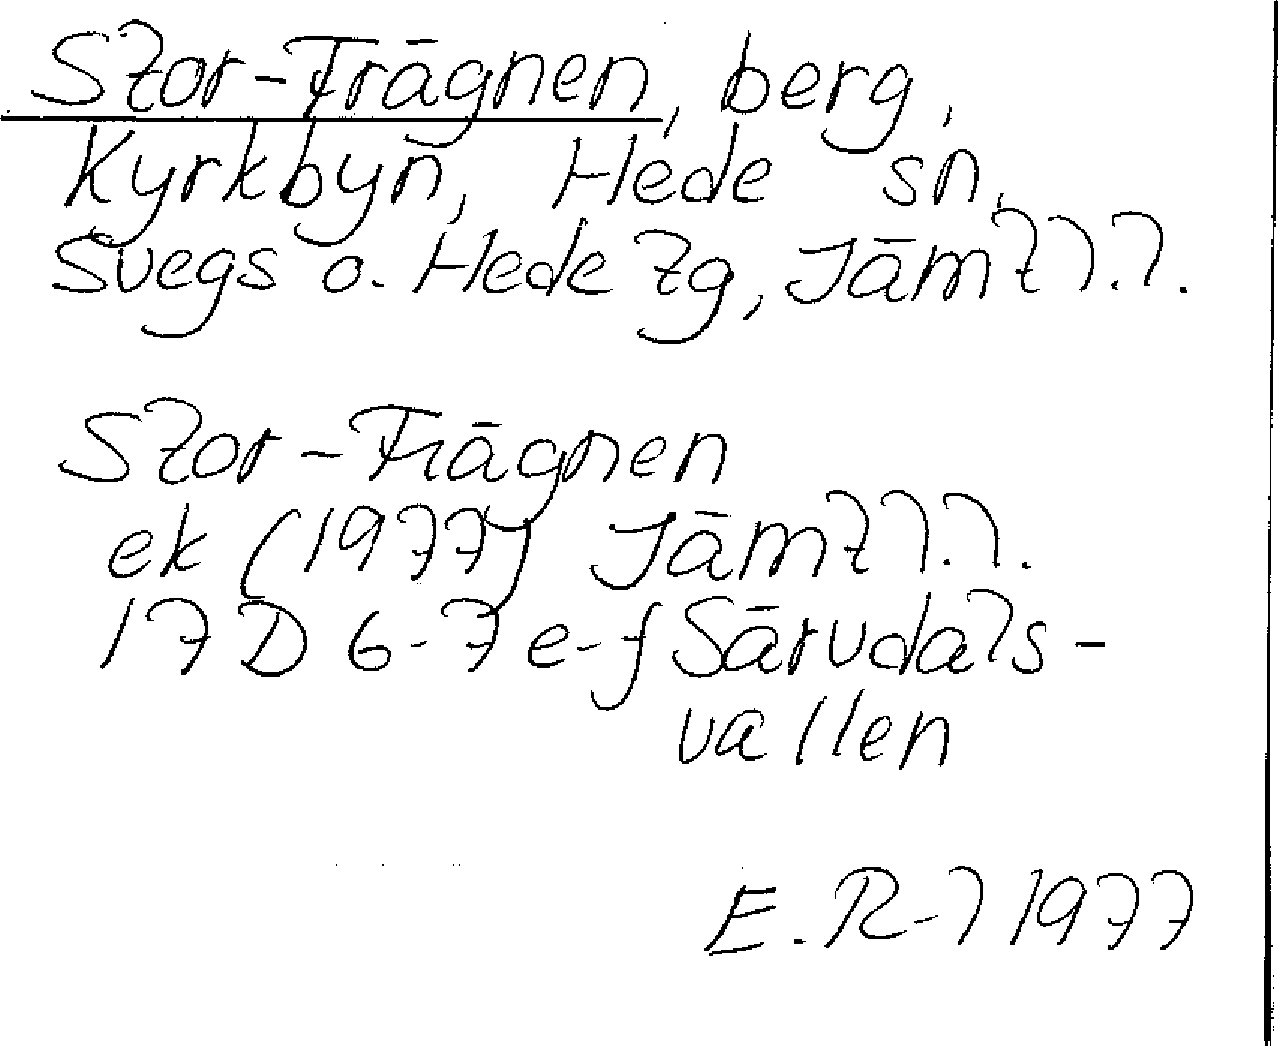 Stor-Frägnen, berg,
Kyrkbyn, Hede sn,
Svegs o. Hede tg, Jämtl.l.
Stor-Frägnen
ek (1977) Jämtl.l.
17D 6-7 e-f Särvdals-
vallen
E. R-l 1977